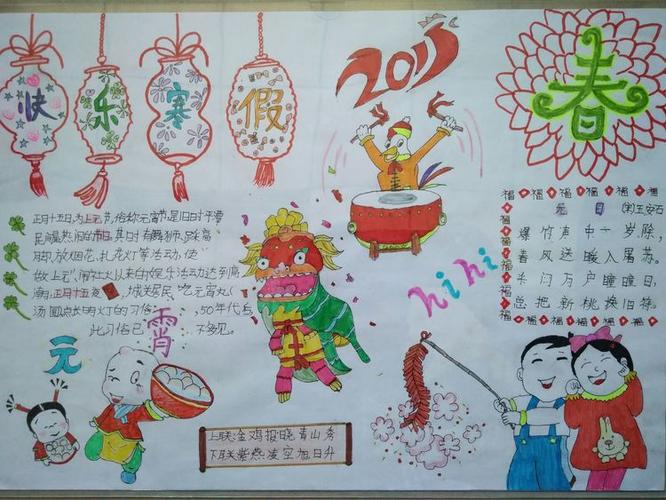 快乐寒假
2015
春
正月十五日,为上元节,俗称元宵节,是旧日时千潭
民间最热闹的节日,其日时有舞狮,踩高
脚,放烟花,扎花灯等活动,使
"做上元",闹社火以来的娱乐活动达到高
潮,正月十五夜,城关居民,吃元宵丸(
汤圆)点长明灯的习俗,50年代后
此习俗已不多见。
元宵
hi hi
元日 (宋)王安石
爆竹声中一岁除,
春风送暖入屠苏。
千门万户曈曈日,
总把新桃换旧符。
福福福福福福
上联:金鸡报晓青山秀
下联:紫燕凌空旭日升